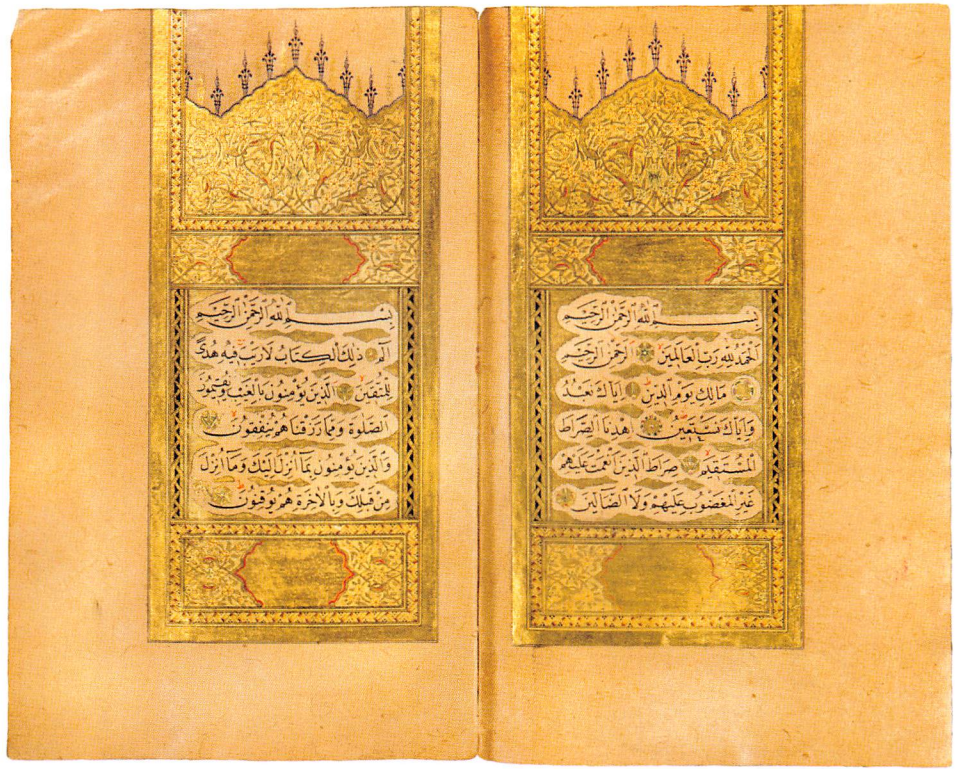 بِسْمِ ٱللّٰهِ ٱلرَّحْمٰنِ ٱلرَّحِيمِ
اَلْحَمْدُ لِلّٰهِ رَبِّ الْعَالَمِينَ اَلرَّحْمٰنِ الرَّحِيمِ
مَالِكِ يَوْمِ الدِّينِ اِيَّاكَ نَعْبُدُ
وَاِيَّاكَ نَسْتَعِينُ اِهْدِنَا الصِّرَاطَ
الْمُسْتَقِيمَ صِرَاطَ الَّذِينَ اَنْعَمْتَ عَلَيْهِمْ
غَيْرِ الْمَغْضُوبِ عَلَيْهِمْ وَلَا الضَّالِّينَ
بِسْمِ ٱللّٰهِ ٱلرَّحْمٰنِ ٱلرَّحِيمِ
الٓمٓ ذٰلِكَ الْكِتَابُ لَا رَيْبَ فِيهِ هُدًى
لِلْمُتَّقِينَ اَلَّذِينَ يُؤْمِنُونَ بِالْغَيْبِ وَيُقِيمُونَ
الصَّلٰوةَ وَمِمَّا رَزَقْنَاهُمْ يُنْفِقُونَ
وَالَّذِينَ يُؤْمِنُونَ بِمَا اُنْزِلَ اِلَيْكَ وَمَا اُنْزِلَ
مِنْ قَبْلِكَ وَبِالْاٰخِرَةِ هُمْ يُوقِنُونَ